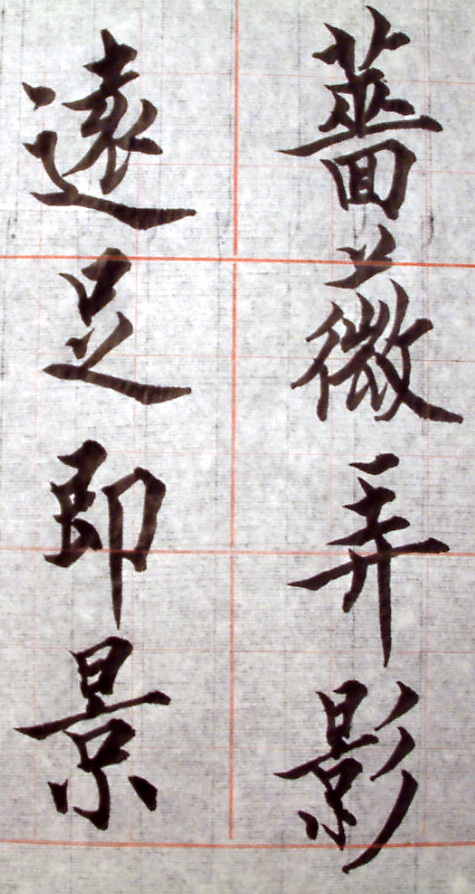 薔薇弄影
遠足即景